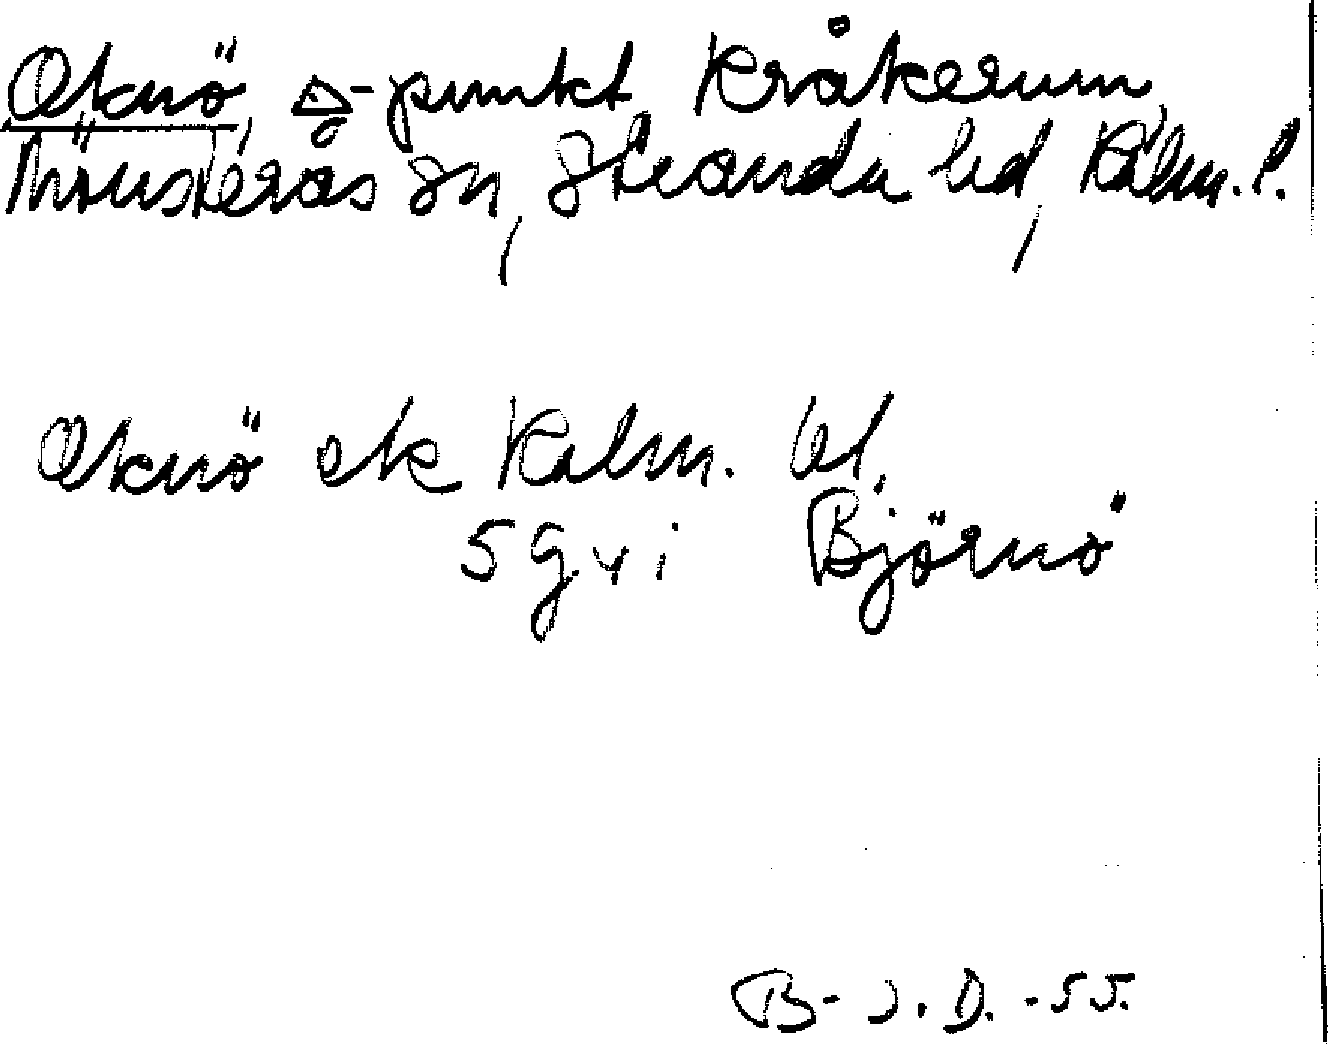 Oknö, △-punkt, Kråkerum,
Mönsterås sn, Stranda hd, Kalm. l.
Oknö ek Kalm. bl.
5 g v i Björnö
B-J.D. -55.